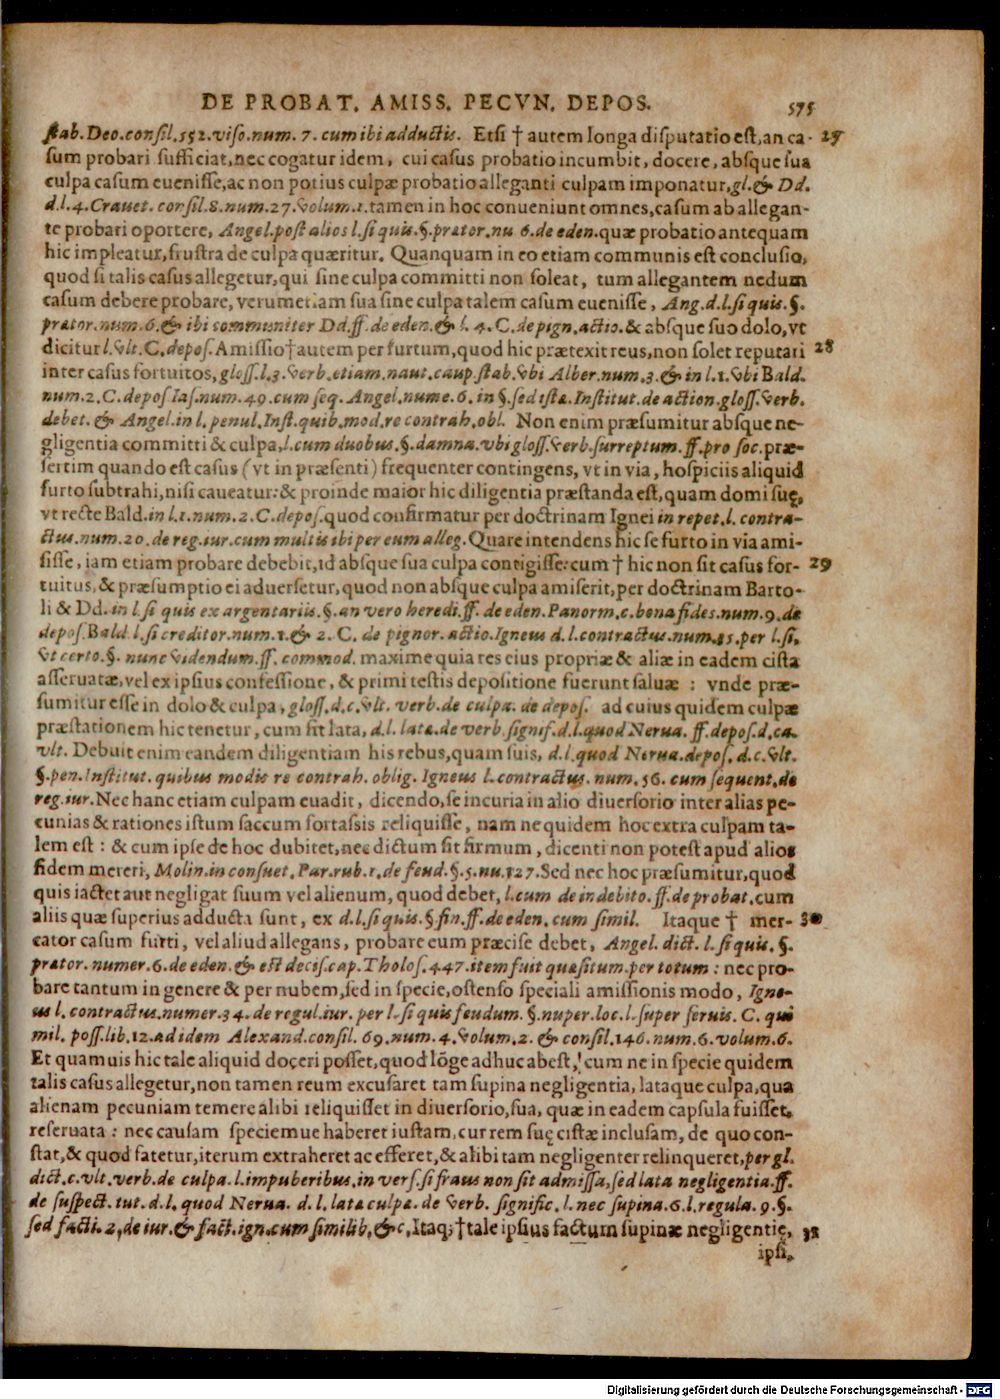 DE PROBAT. AMISS. PECVN. DEPOS. 575
stab. Deo. consil. 552. viso. num. 7. cum ibi adductis. Etsi † autem longa disputatio est, an ca- 27
sum probari sufficiat, nec cogatur idem, cui casus probatio incumbit, docere, absque sua
culpa casum euenisse, ac non potius culpæ probatio alleganti culpam imponatur, gl. & Dd.
d.l. 4. Crauet. consil. 8. num. 27. volum. 1. tamen in hoc conueniunt omnes, casum ab allegan-
te probari oportere, Angel. post alios l. si quis. §. prætor. nu 6. de eden. quæ probatio antequam
hic impleatur, frustra de culpa quæritur. Quanquam in eo etiam communis est conclusio,
quod si talis casus allegetur, qui sine culpa committi non soleat, tum allegantem nedum
casum debere probare, verumetiam sua sine culpa talem casum euenisse, Ang. d. l. si quis. §.
prætor. num. 6. & ibi communiter Dd. ff. de eden. & l. 4. C. de pign. actio. & absque suo dolo, vt
dicitur l. vlt. C. depos. Amissio † autem per furtum, quod hic prætexit reus, non solet reputari 28
inter casus fortuitos, gloss. l. 3. verb. etiam. naut. caup. stab. vbi Alber. num. 3. & in l. 1. vbi Bald.
num. 2. C. depos Ias. num. 49. cum seq. Angel. nume. 6. in §. sed ista. Institut. de action. gloss. verb.
debet. & Angel. in l. penul. Inst. quib. mod. re contrah. obl. Non enim præsumitur absque ne-
gligentia committi & culpa, l. cum duobus. §. damna. vbi gloss. verb. surreptum. ff. pro soc. præ-
sertim quando est casus (vt in præsenti) frequenter contingens, vt in via, hospiciis aliquid
furto subtrahi, nisi caueatur: & proinde maior hic diligentia præstanda est, quam domi suę,
vt recte Bald. in l. 1. num. 2. C. depos. quod confirmatur per doctrinam Ignei in repet. l. contra-
ctus. num. 20. de reg. iur. cum multis ibi per eum alleg. Quare intendens hic se furto in via ami-
sisse, iam etiam probare debebit, id absque sua culpa contigisse: cum † hic non sit casus for- 29
tuitus, & præsumptio ei aduersetur, quod non absque culpa amiserit, per doctrinam Barto-
li & Dd. in l. si quis ex argentariis. §. an vero heredi. ff. de eden. Panorm. c. bona fides. num. 9. de
depos. Bald. l. si creditor. num. 1. & 2. C. de pignor. actio. Igneus d. l. contractus. num. 55. per l. si,
vt certo. §. nunc videndum. ff. commod. maxime quia res eius propriæ & aliæ in eadem cista
asseruatæ, vel ex ipsius confessione, & primi testis depositione fuerunt saluæ : vnde præ-
sumitur esse in dolo & culpa, gloss. d. c. vlt. verb. de culpa. de depos. ad cuius quidem culpæ
præstationem hic tenetur, cum sit lata, d. l. lata. de verb. signif. d. l. quod Nerua. ff. depos. d. ca.
vlt. Debuit enim eandem diligentiam his rebus, quam suis, d. l. quod Nerua. depos. d. c. vlt.
§. pen. Institut. quibus modis re contrah. oblig. Igneus l. contractus. num. 56. cum sequent. de
reg. iur. Nec hanc etiam culpam euadit, dicendo, se incuria in alio diuersorio inter alias pe-
cunias & rationes istum saccum fortassis reliquisse, nam ne quidem hoc extra culpam ta-
lem est : & cum ipse de hoc dubitet, nec dictum sit firmum, dicenti non potest apud alios
fidem mereri, Molin. in consuet. Par. rub. 1. de feud. §. 5. nu. 127. Sed nec hoc præsumitur, quod
quis iactet aut negligat suum vel alienum, quod debet, l. cum de indebito. ff. de probat. cum
aliis quæ superius adducta sunt, ex d. l. si quis. § fin. ff. de eden. cum simil. Itaque † mer- 30
cator casum furti, vel aliud allegans, probare eum præcise debet, Angel. dict. l. si quis. §.
prætor. numer. 6. de eden. & est decis. cap. Tholos. 447. item fuit quæsitum. per totum : nec pro-
bare tantum in genere & per nubem, sed in specie, ostenso speciali amissionis modo, Igne-
us l. contractus. numer. 34. de regul. iur. per l. si quis feudum. §. nuper. loc. l. super seruis. C. qui
mil. poss. lib. 12. ad idem Alexand. consil. 69. num. 4. volum. 2. & consil. 146. num. 6. volum. 6.
Et quamuis hic tale aliquid doceri posset, quod lōge adhuc abest, cum ne in specie quidem
talis casus allegetur, non tamen reum excusaret tam supina negligentia, lataque culpa, qua
alienam pecuniam temere alibi reliquisset in diuersorio, sua, quæ in eadem capsula fuisset,
reseruata : nec causam speciemue haberet iustam, cur rem suę cistæ inclusam, de quo con-
stat, & quod fatetur, iterum extraheret ac efferet, & alibi tam negligenter relinqueret, per gl.
dict. c. vlt. verb. de culpa. l. impuberibus. in vers. si fraus non sit admissa, sed lata negligentia. ff.
de suspect. tut. d. l. quod Nerua. d. l. lata culpa. de verb. signific. l. nec supina. 6. l. regula. 9. §.
sed facti. 2. de iur. & fact. ign. cum similib. &c. Itaq; † tale ipsius factum supinæ negligentię, 31
ipsi,
Digitalisierung gefördert durch die Deutsche Forschungsgemeinschaft - DFG